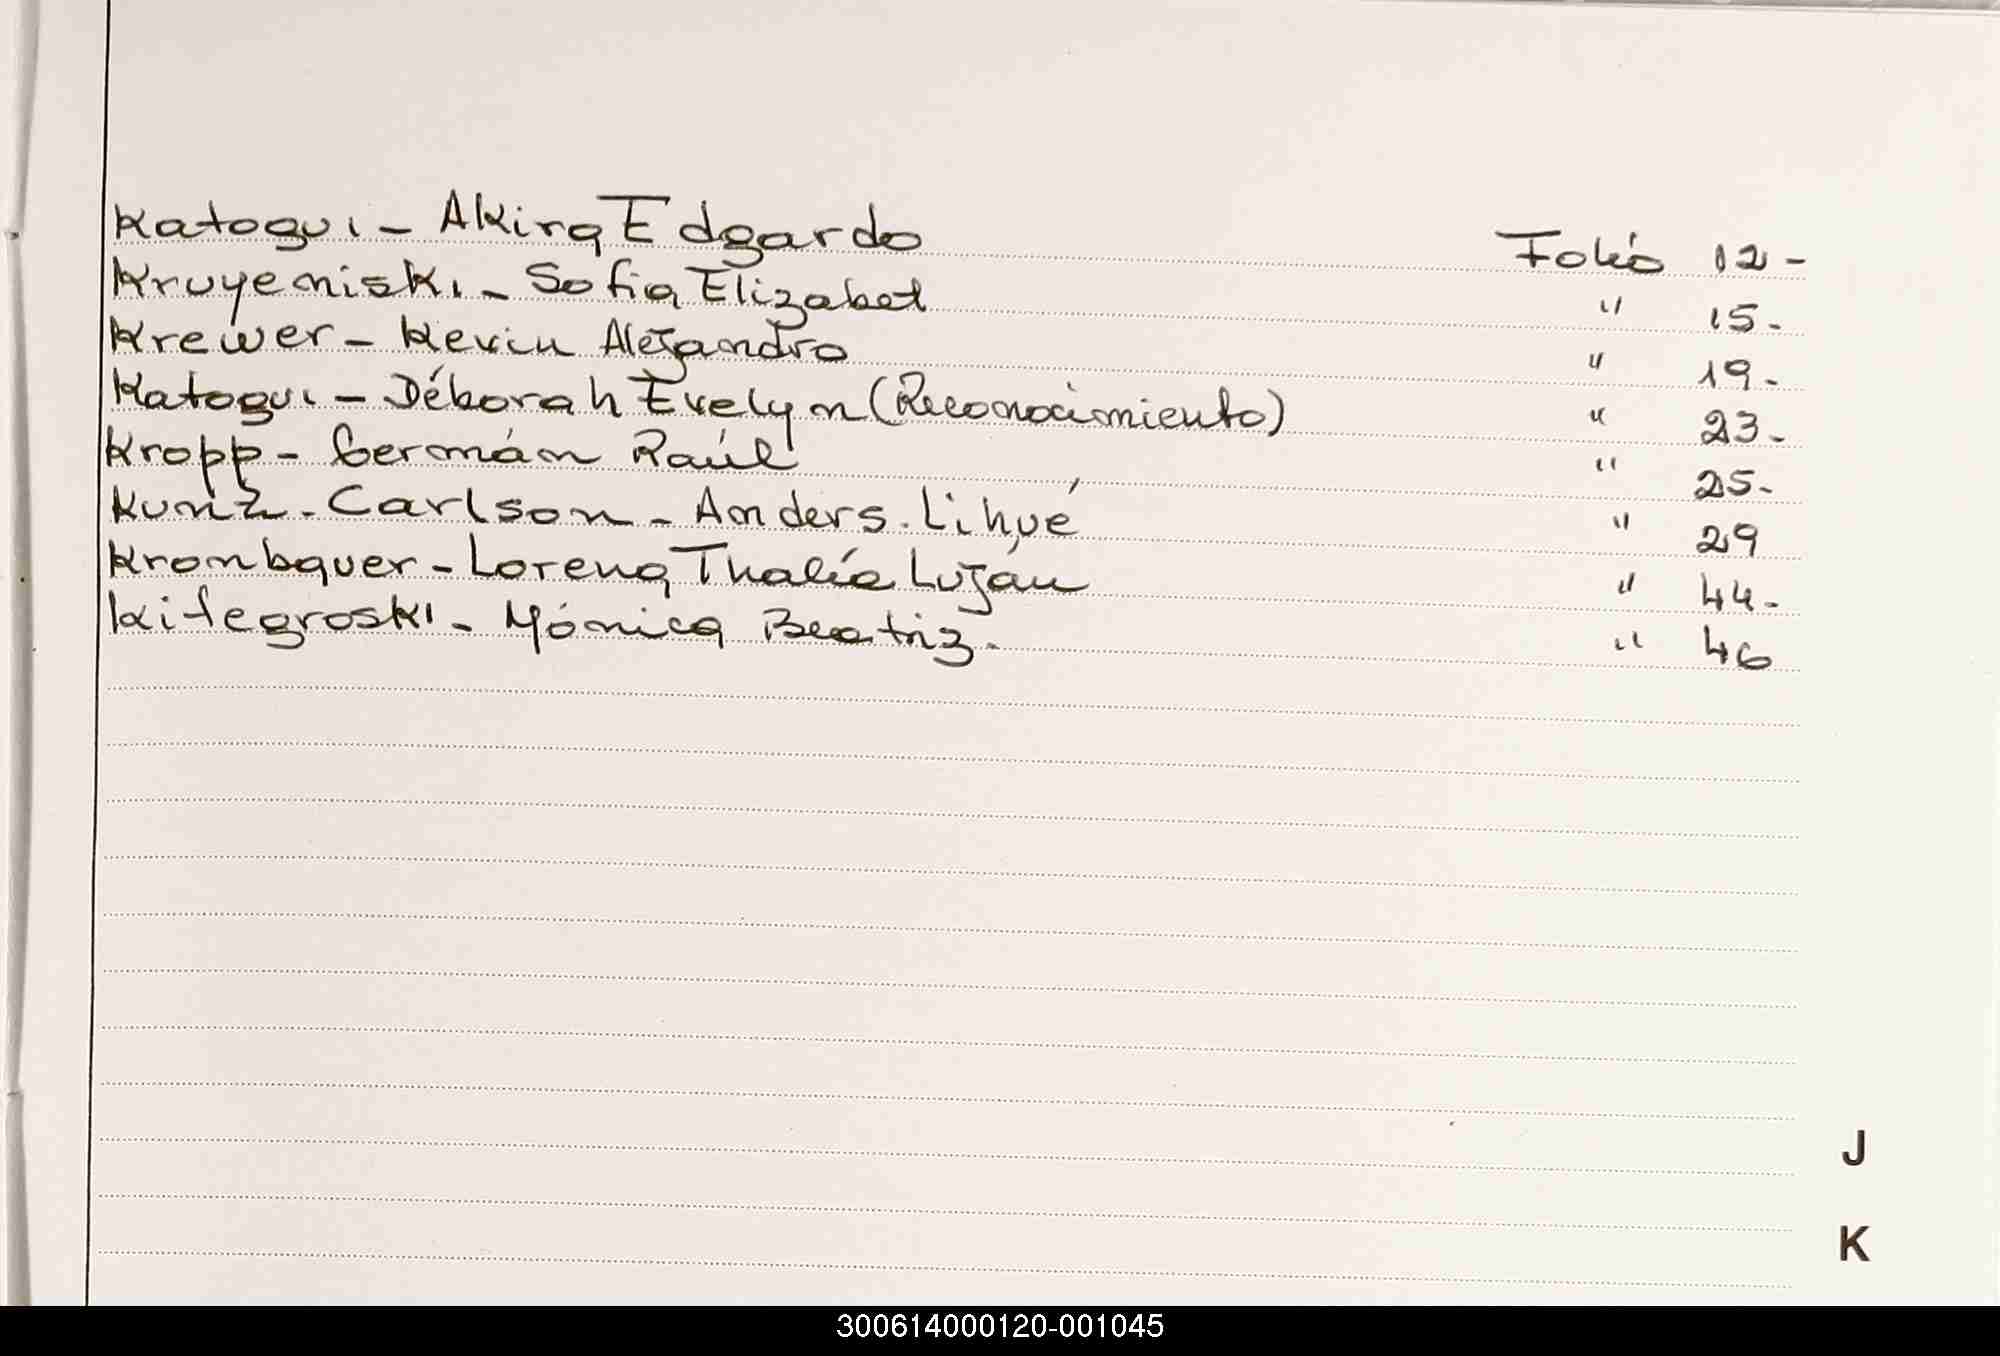 Katogui - Akira Edgardo Folio 12 -
Kruyeniski - Sofia Elizabet " 15 -
Krewer - Kevin Alejandro " 19 -
Katogui - Déborah Evelyn (Reconocimiento) " 23 -
Kropp - Germán Raúl " 25 -
Kunz - Carlson - Anders. Lihué " 29
Krombauer - Lorena Thalía Luján " 44 -
Kifegroski - Mónica Beatriz - " 46
J
K
300614000120-001045